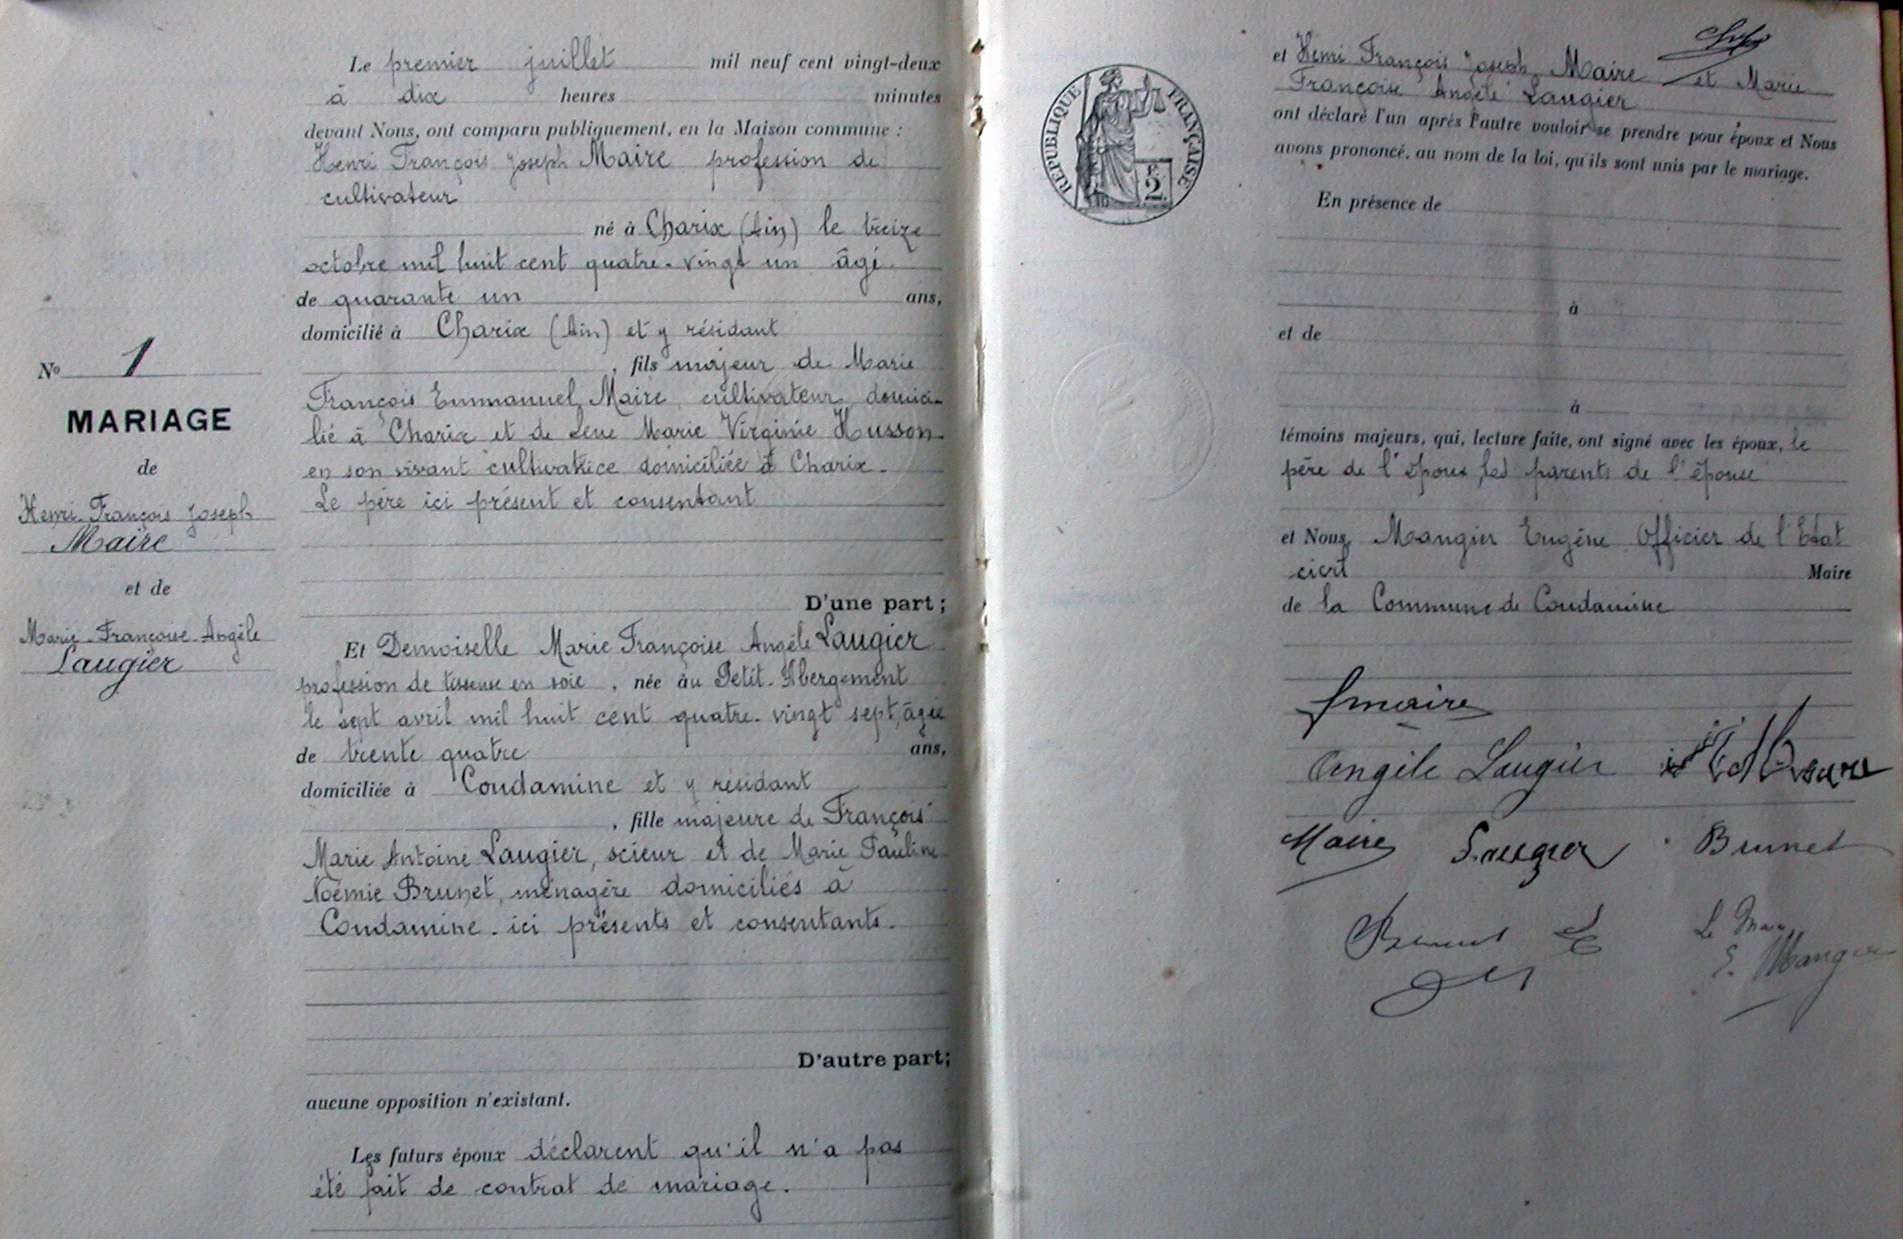 Le premier juillet mil neuf cent vingt-deux
à dix heures minutes
devant Nous, ont comparu publiquement, en la Maison commune :
Henri François Joseph Maire profession de
cultivateur
né à Charix (Ain) le treize
octobre mil huit cent quatre-vingt un âgé
de quarante un ans,
domicilié à Charix (Ain) et y résidant
, fils majeur de Marie
François Emmanuel Maire, cultivateur domici-
lié à Charix et de Marie Virginie Husson
en son vivant cultivatrice domiciliée à Charix.
Le père ici présent et consentant
D'une part ;
Nº 1
MARIAGE
de
Henri François Joseph
Maire
et de
Marie-Françoise-Angèle
Laugier
Et Demoiselle Marie Françoise Angèle Laugier
profession de tisseuse en soie, née au Petit-Abergement
le sept avril mil huit cent quatre-vingt sept, âgée
de trente quatre ans,
domiciliée à Condamine et y résidant
, fille majeure de François
Marie Antoine Laugier, scieur et de Marie Pauline
Noémie Brunet, ménagère domiciliés à
Condamine. ici présents et consentants.
D'autre part ;
aucune opposition n'existant.
Les futurs époux déclarent qu'il n'a pas
été fait de contrat de mariage.
REPUBLIQUE FRANÇAISE
F.
2
et Henri François Joseph Maire et Marie
Françoise Angèle Laugier
ont déclaré l'un après l'autre vouloir se prendre pour époux et Nous
avons prononcé, au nom de la loi, qu'ils sont unis par le mariage.
En présence de
à
et de
à
témoins majeurs, qui, lecture faite, ont signé avec les époux, le
père de l'époux, les parents de l'épouse
et Nous, Mangier Eugène Officier de l'Etat
civil Maire
de la Commune de Condamine
fmaire
Angèle Laugier
Maire Laugier Brunet
Brunet
Le Maire
E. Mangier